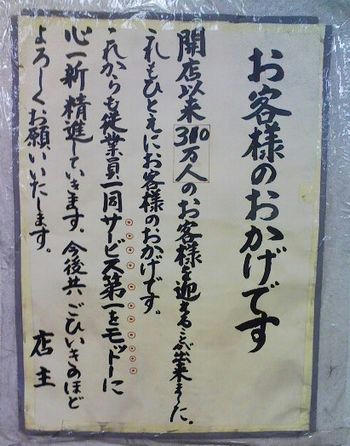 お客様のおかげです
開店以来310万人のお客様を迎える事が出来ました。
これもひとえにお客様のおかげです。
これからも従業員一同サービス第一をモットーに
心一新精進していきます。今後共ごひいきのほど
よろしくお願いいたします。
店主